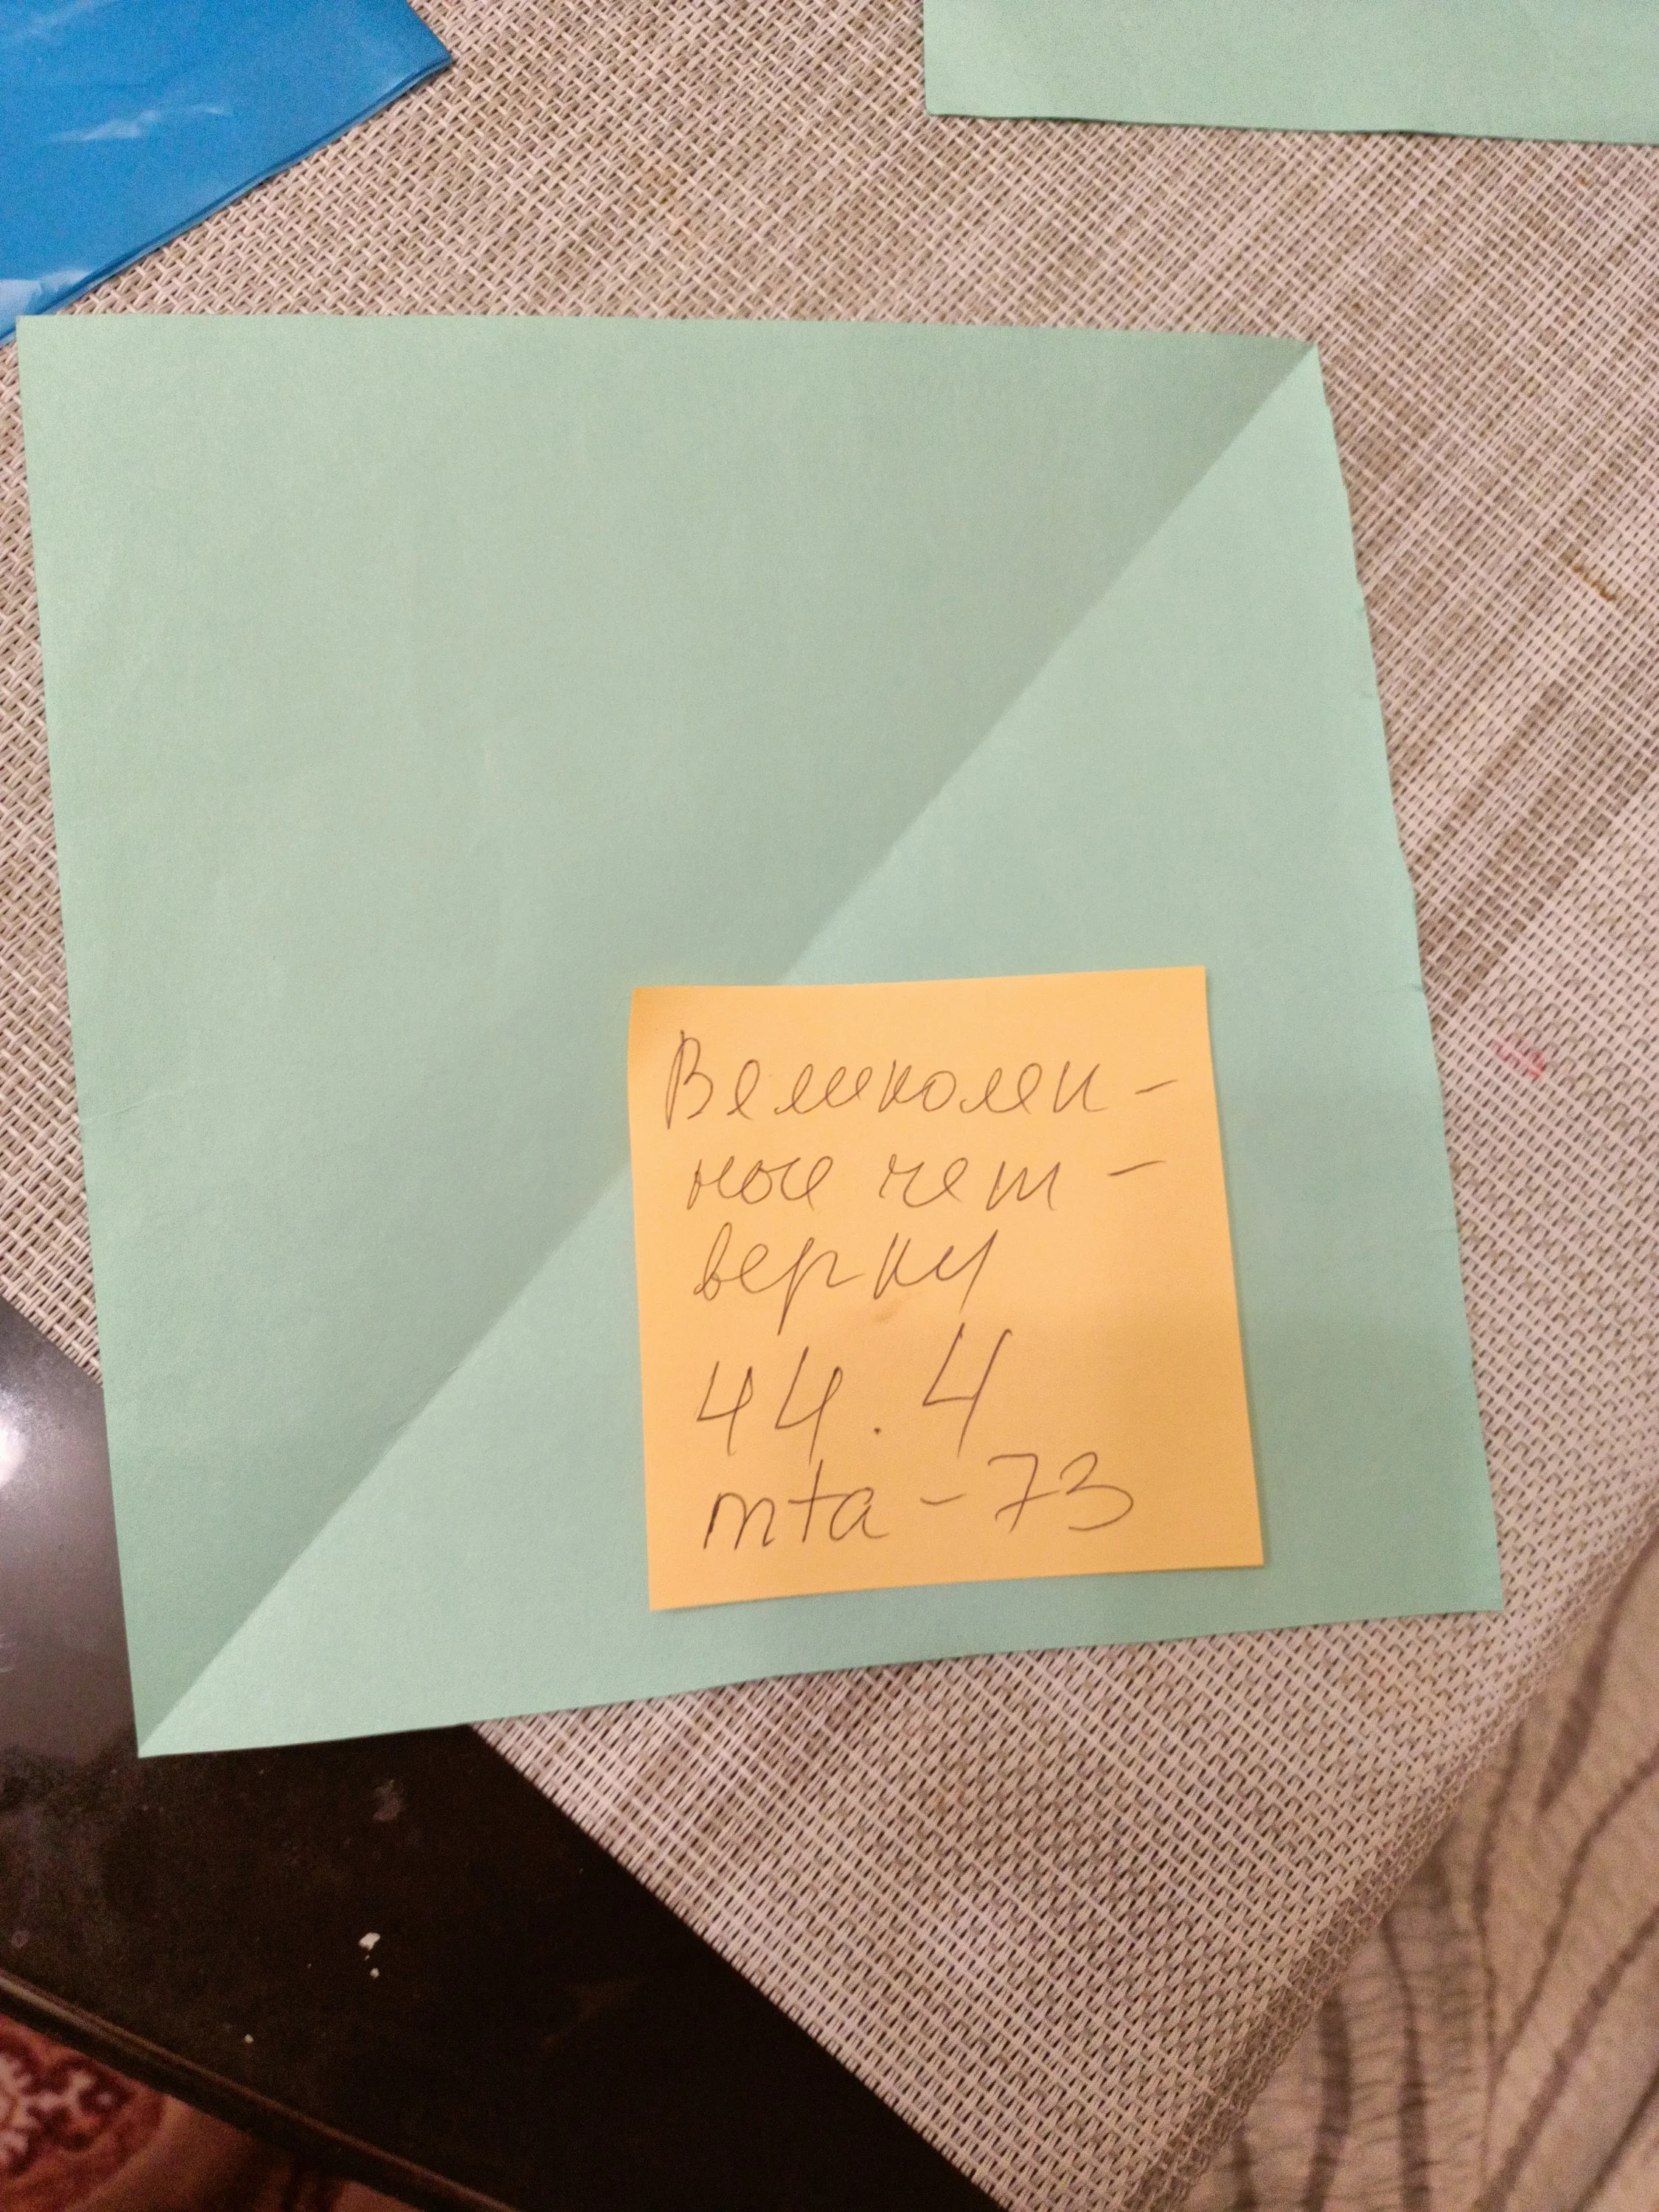 Великолеп-
ное чет-
верку
44.4
mta-73